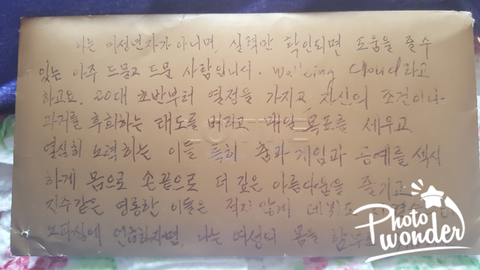 나는 미성년자가 아니며, 실력만 확인되면 도움을 줄 수
있는 아주 드물고 드문 사람입니다. Walking Cloud라고
하고요. 20대 초반부터 열정을 가지고 자신의 조건이나
과거를 후회하는 태도를 버리고 매일 목표를 세우고
열심히 노력하는 이들 특히 춤과 게임과 공예를 섹시
하게 몸으로 손끝으로 더 깊은 아름다움을 즐기고
진주같은 영롱한 이들은 적지 않게
나는 여성의 몸을
Photo
wonder